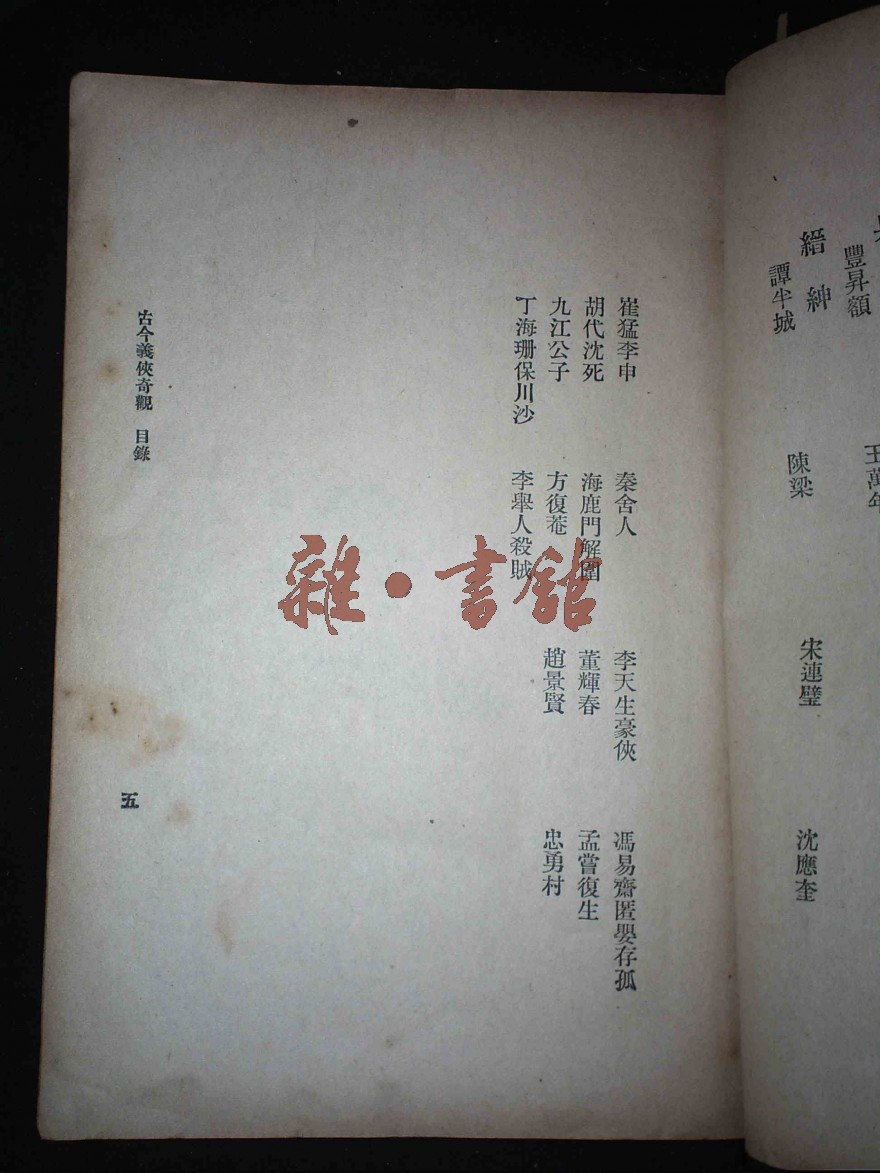 豐昇額
縉紳
譚半城 陳梁 宋連璧 沈應奎
崔猛李申 秦舍人 李天生豪俠 馮易齋匿嬰存孤
胡代沈死 海鹿門解圍 董輝春 孟嘗復生
九江公子 方復菴 趙景賢 忠勇村
丁海珊保川沙 李舉人殺賊
古今義俠奇觀 目錄
五
雜·書館